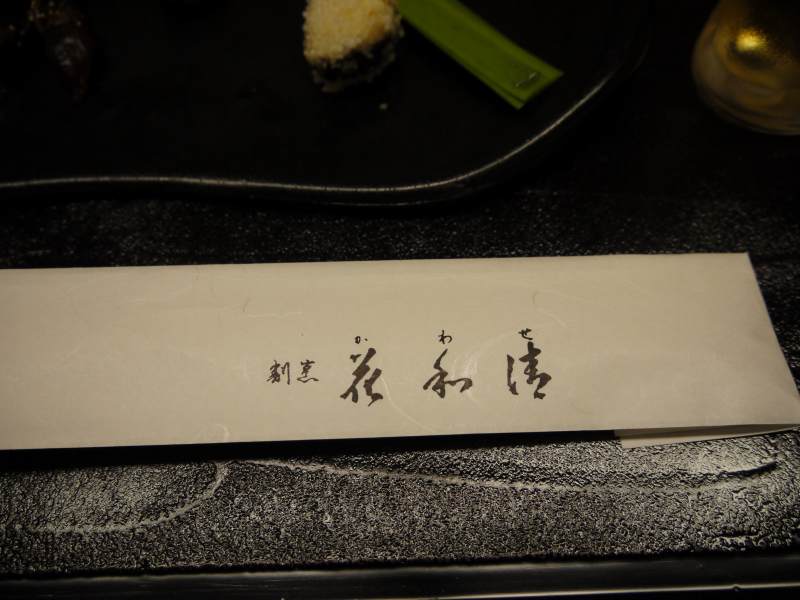 か わ せ
割烹 花和清